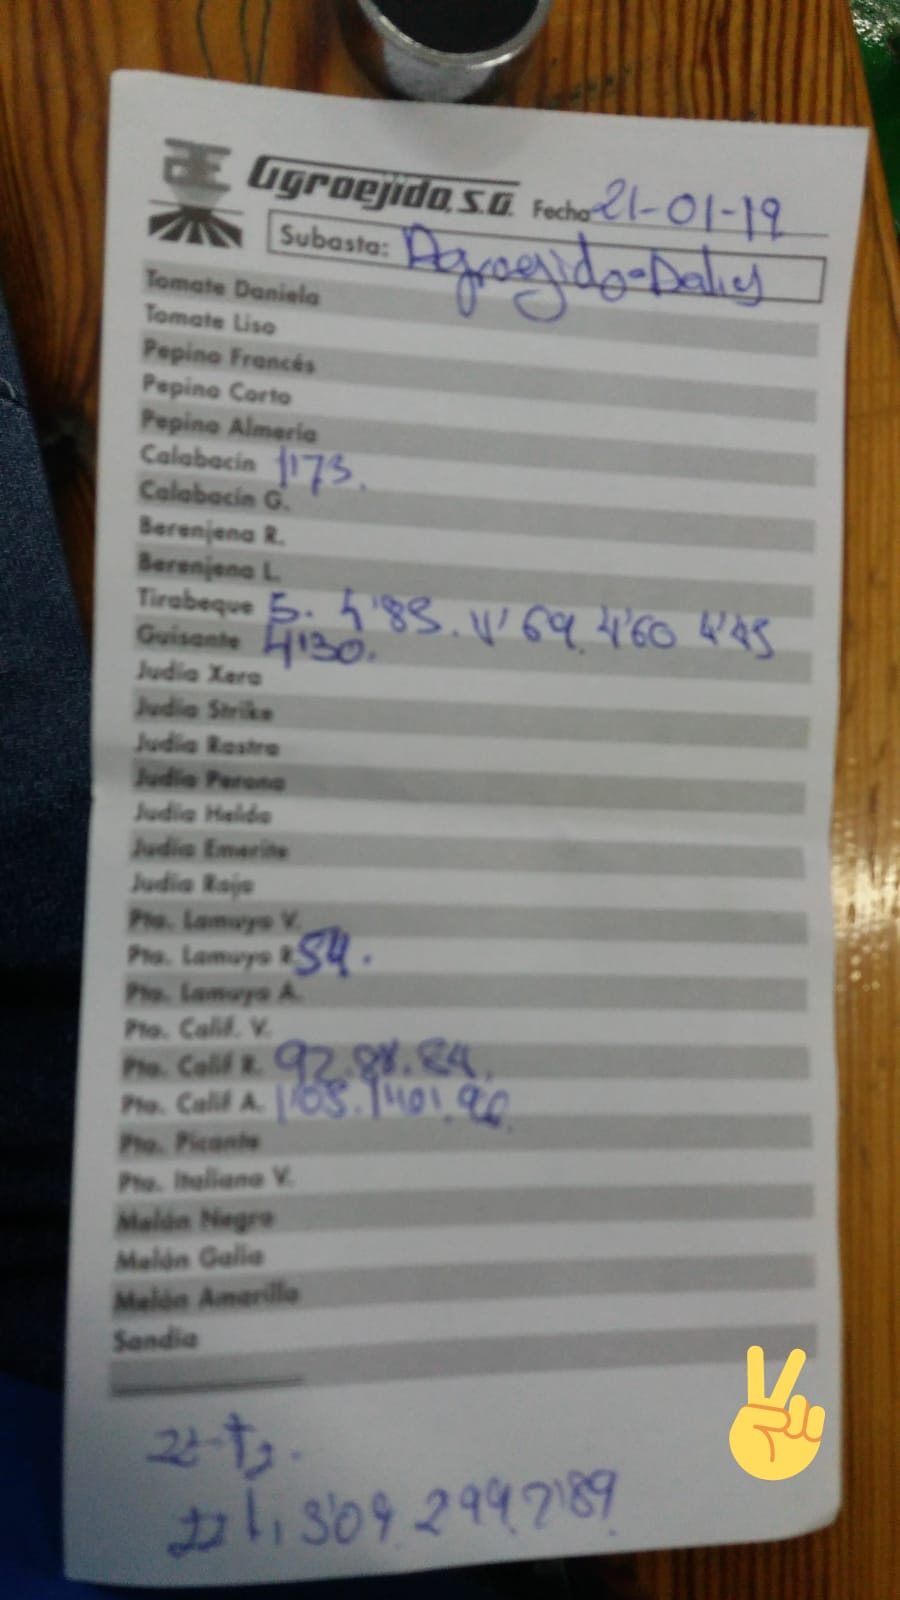 Agroejido, S.A. Fecha 21-01-19
Subasta: Agroejido-Dalias
Tomate Daniela
Tomate Liso
Pepino Francés
Pepino Corto
Pepino Almería
Calabacín 1'73.
Calabacín G.
Berenjena R.
Berenjena L.
Tirabeque 5. 4'85. 4'69. 4'60 4'45
Guisante 4'30.
Judía Xera
Judía Strike
Judía Rastra
Judía Perona
Judía Helda
Judía Emerite
Judía Roja
Pto. Lamuyo V.
Pto. Lamuyo R. 54.
Pto. Lamuyo A.
Pto. Calif. V.
Pto. Calif R. 92. 88. 84.
Pto. Calif A. 1'05. 1'01. 96.
Pto. Picante
Pto. Italiano V.
Melón Negro
Melón Galia
Melón Amarillo
Sandía
3'09. 2'99. 2'89.